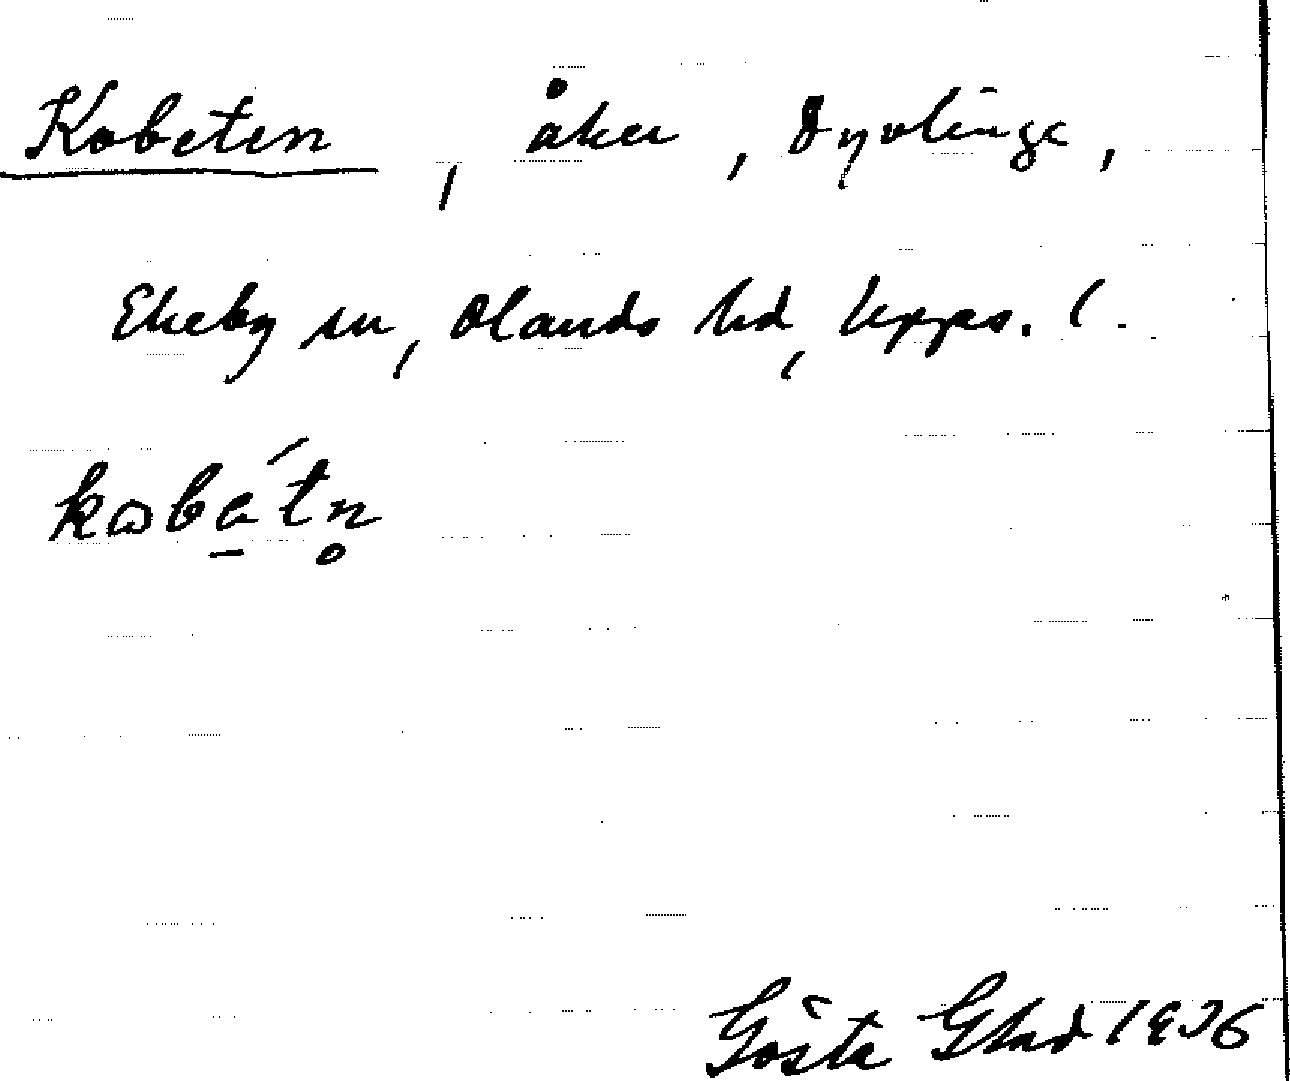 Kobeten, åker, Dyvlinge,
Ekeby sn, Olands hd, Upps. l.
kɷbe̱´tn̥
Gösta Glad 1936